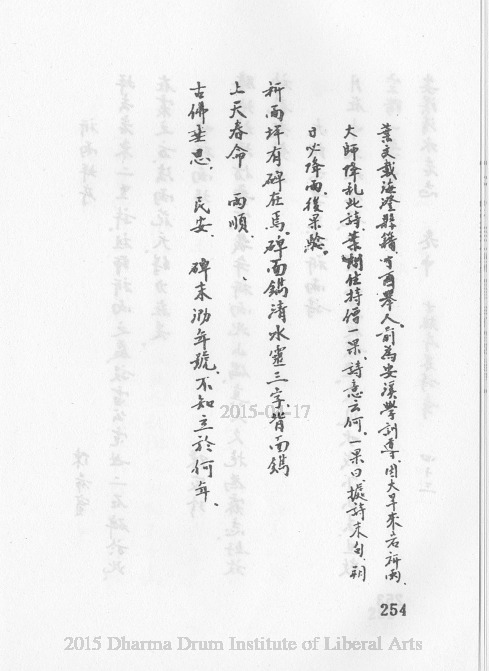 葉文載海澄縣籍丁酉舉人前為安溪學訓導因大旱來岩祈雨、
大師降乩此詩葉問住持僧一果、詩意云何、一果曰據詩末句、明
日必降雨後果驗。
祈雨坪有碑在焉、碑面鐫清水靈三字、背面鐫
上天春命 雨順、
古佛垂思、 民安、 碑末泐年號、不知立於何年、
2015-04-17
254
2015 Dharma Drum Institute of Liberal Arts